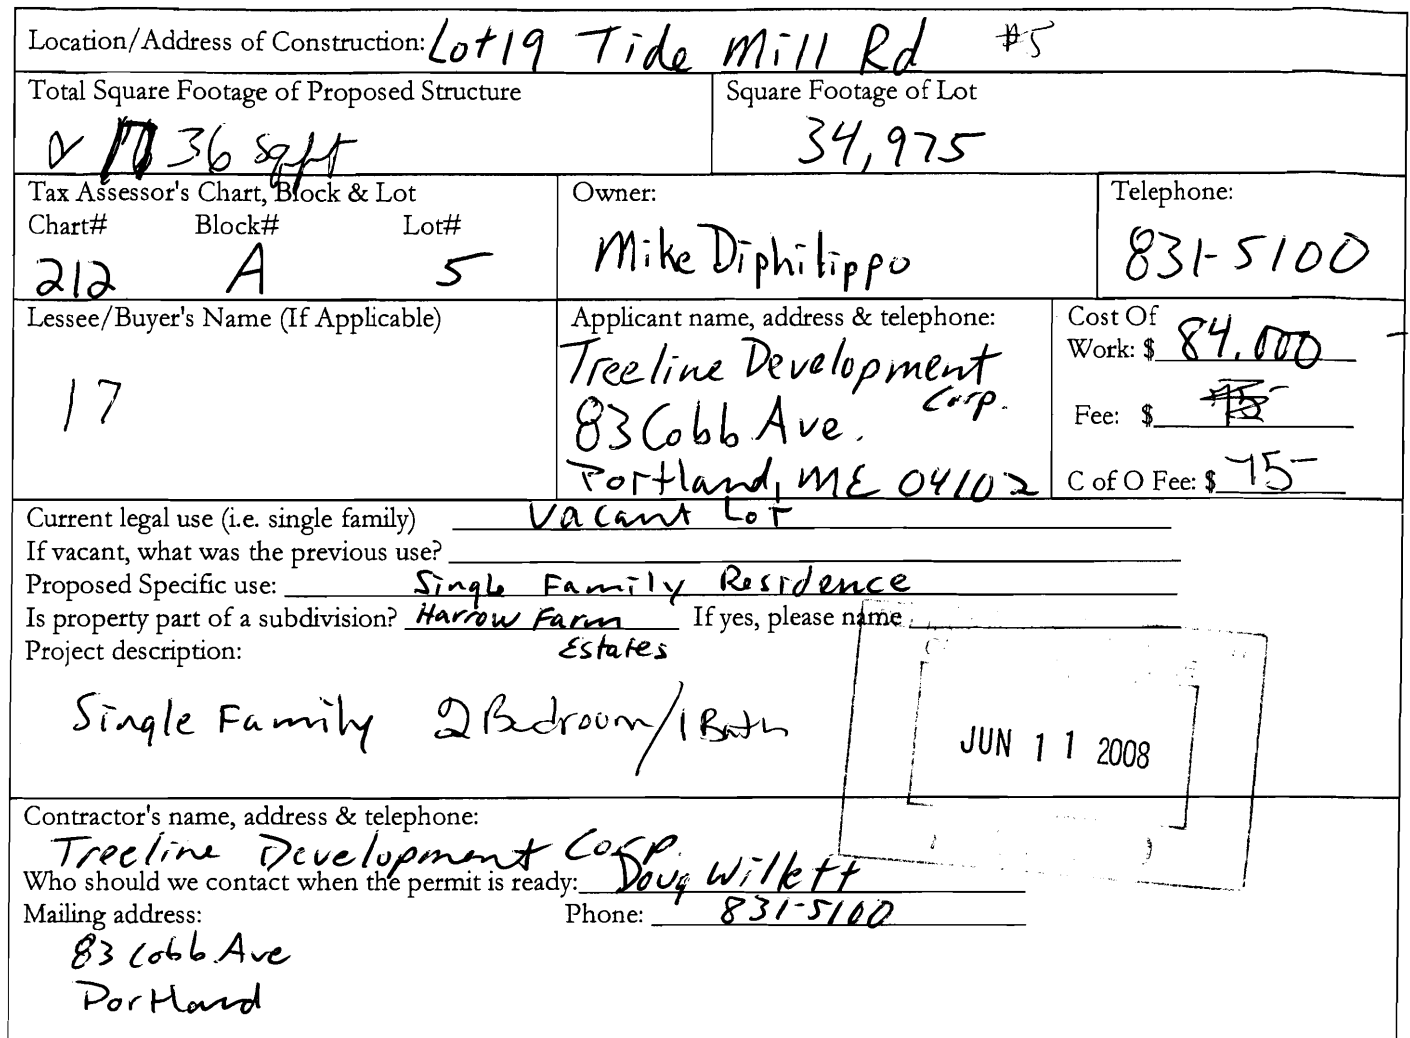 Location/Address of Construction: Lot 19 Tide Mill Rd #5
Total Square Footage of Proposed Structure Square Footage of Lot
36 sqft 34,975
Tax Assessor's Chart, Block & Lot Owner: Telephone:
Chart# Block# Lot#
212 A 5 Mike Diphilippo 831-5100
Lessee/Buyer's Name (If Applicable) Applicant name, address & telephone: Cost Of
Work: $ 84,000
17 Treeline Development
Corp.
83 Cobb Ave. Fee: $
Portland, ME 04102 C of O Fee: $ 75-
Current legal use (i.e. single family) Vacant Lot
If vacant, what was the previous use?
Proposed Specific use: Single Family Residence
Is property part of a subdivision? Harrow Farm If yes, please name
Project description: Estates
Single Family 2 Bedroom/1 Bath
JUN 11 2008
Contractor's name, address & telephone:
Treeline Development Corp.
Who should we contact when the permit is ready: Doug Willett
Mailing address: Phone: 831-5100
83 Cobb Ave
Portland